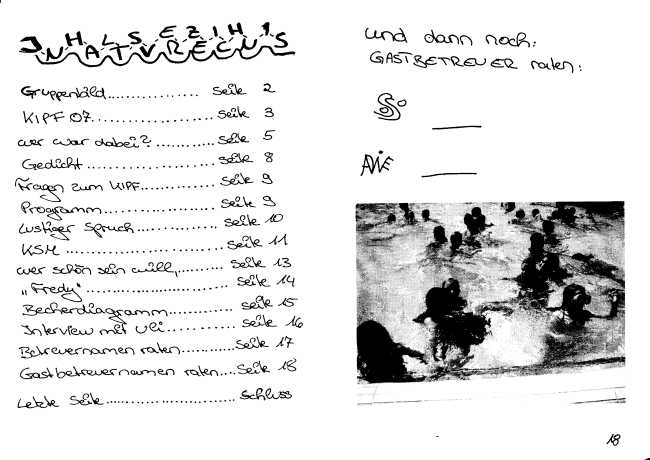 INHALTSVERZEICHNIS
Gruppenbild................ Seite 2
KIPF 07..................... Seite 3
wer war dabei?............ Seite 5
Gedicht..................... Seite 8
Fragen zum KIPF............ Seite 9
Programm.................... Seite 9
Lustiger Spruch............ Seite 10
KSM......................... Seite 11
wer schön sein will,......... Seite 13
"Fredy"..................... Seite 14
Becherdiagramm............ Seite 15
Interview mit Uli........... Seite 16
Betreuernamen raten........... Seite 17
Gastbetreuernamen raten.... Seite 18
Letzte Seite................ Schluss
und dann noch:
GASTBETREUER raten:
18